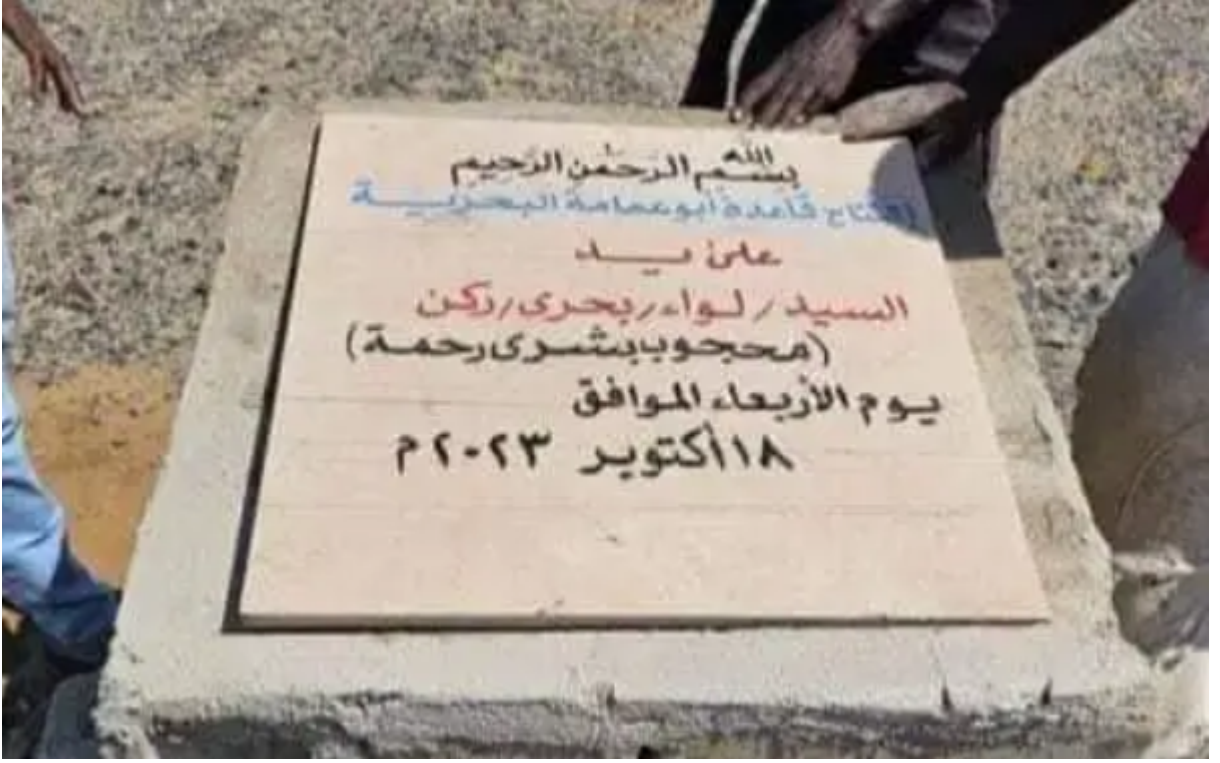 بسم الله الرحمن الرحيم
إفتتاح قاعدة أبوعمامة البحرية
على يد
السيد/ لواء/بحرى/ركن
(محجوب بشرى رحمة)
يوم الأربعاء الموافق
١٨ أكتوبر ٢٠٢٣م